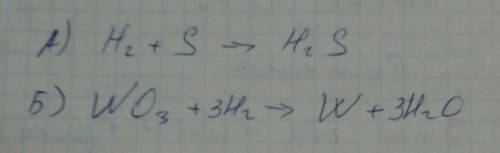 А) H₂ + S → H₂S
Б) WO₃ + 3H₂ → W + 3H₂O